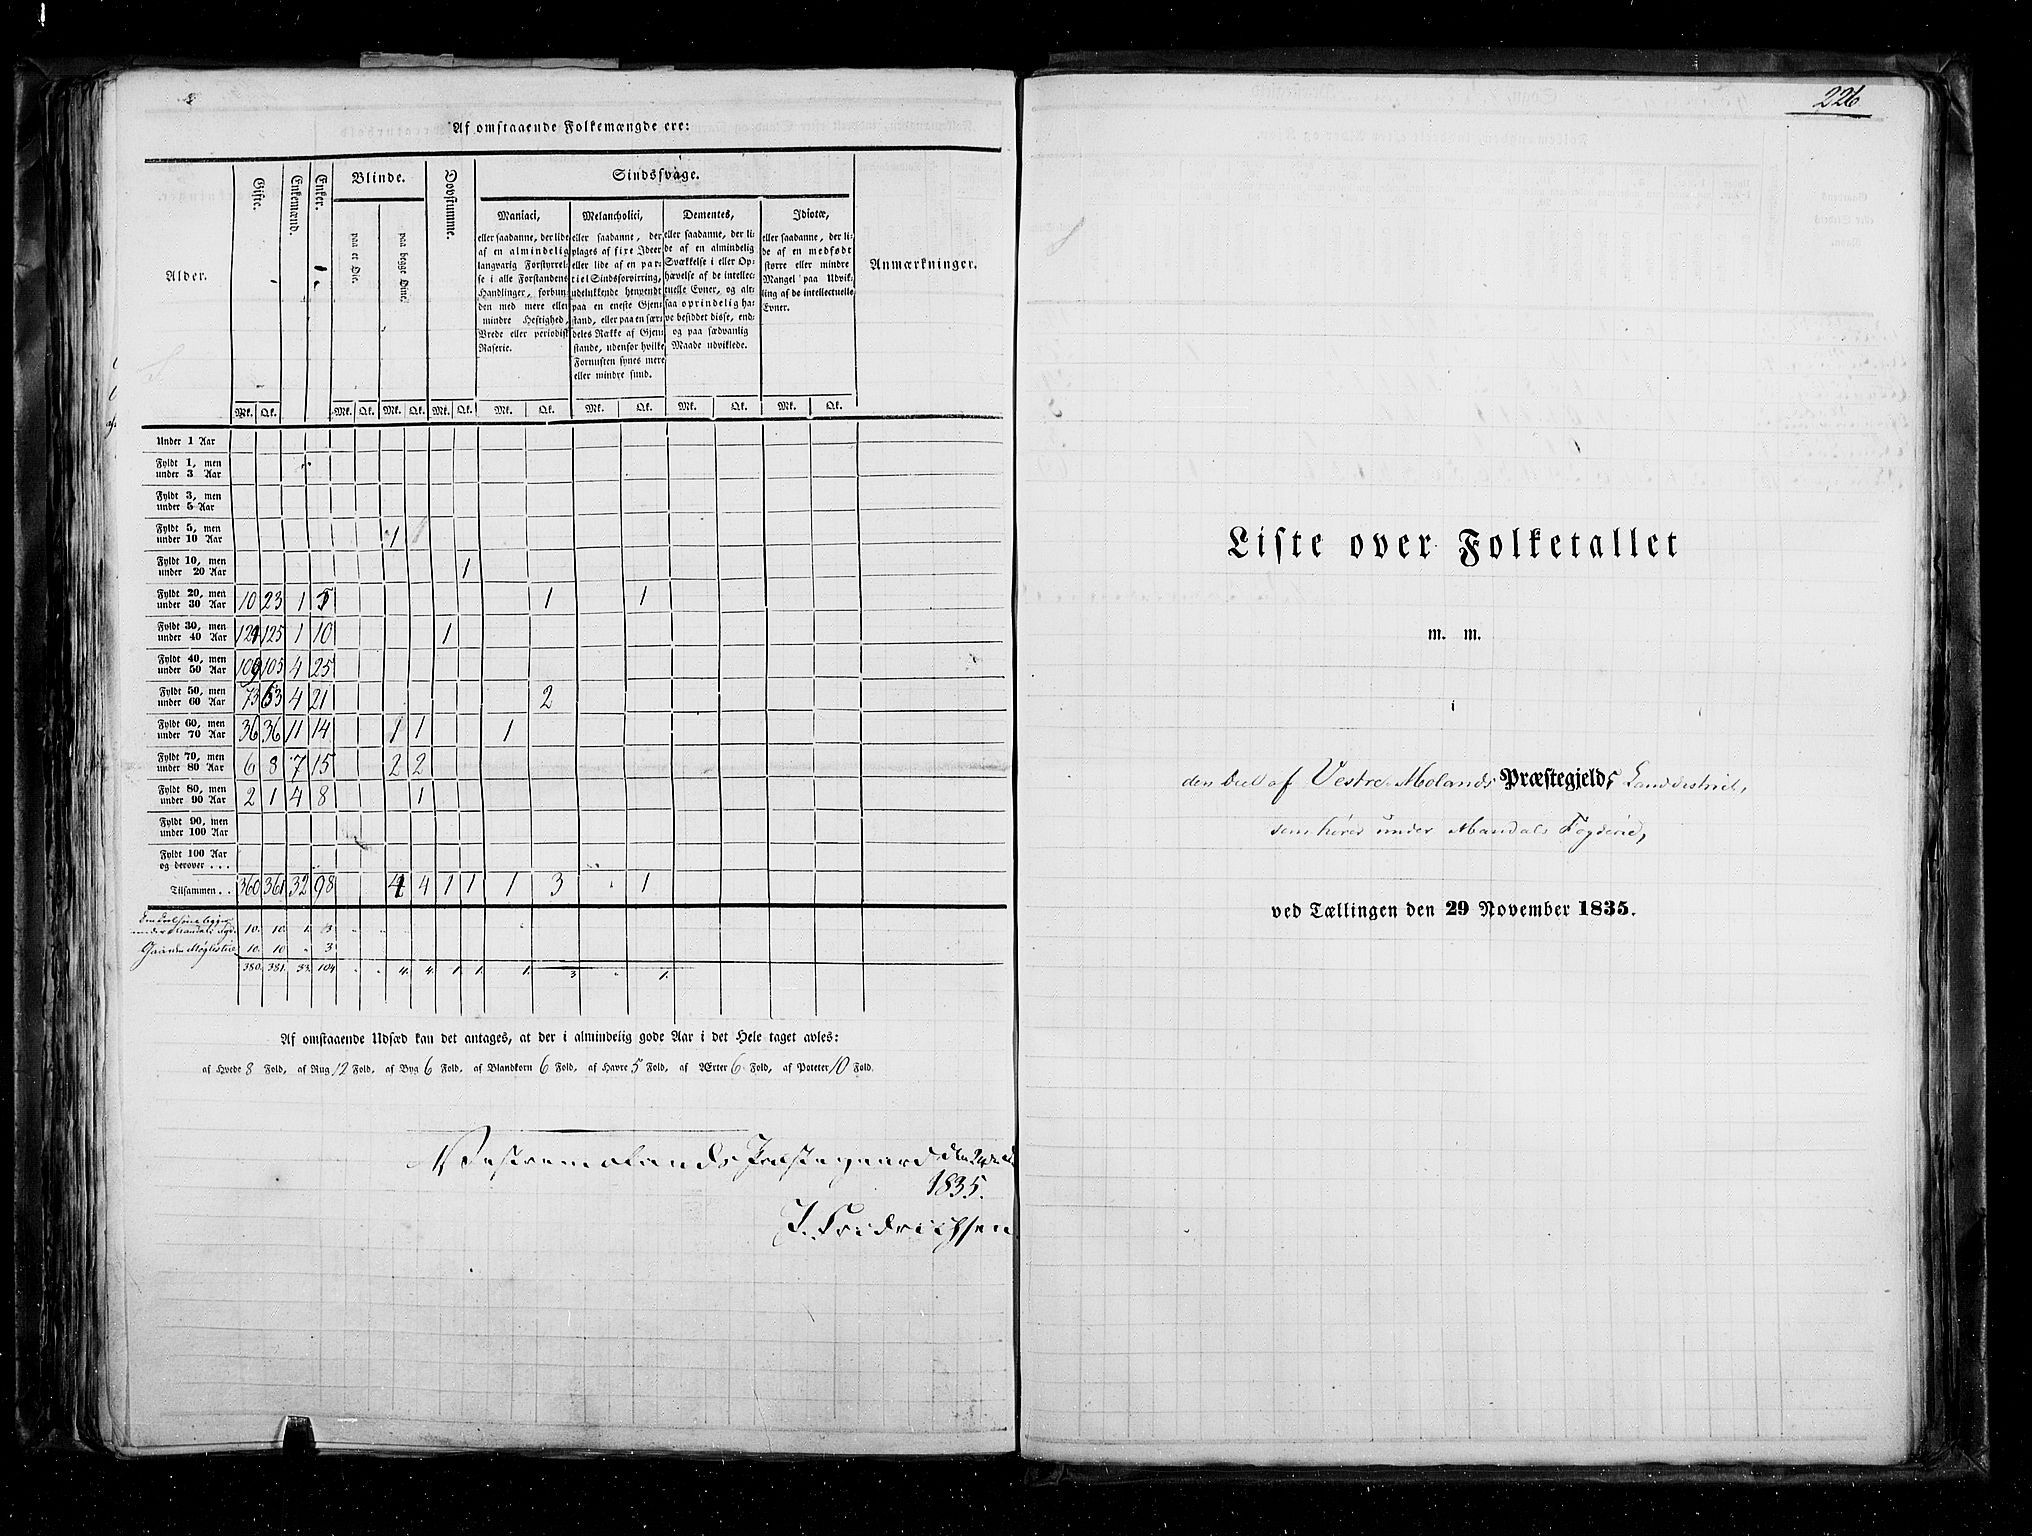 Af omstaaende Folkemængde ere:
Alder. Gifte. Enkemænd. Enker. Blinde. Dovstumme. Sindssvage. Anmærkninger.
paa et Øie. paa begge Øine.
Maniaci,
eller saadanne, der lide
af en almindelig
langvarig Forstyrrel-
se i alle Forstandens
Handlinger, forbun-
den med mere eller
mindre Heftighed,
Vrede eller periodisk
Raserie.
Melancholici,
eller saadanne, der
plages af fixe Ideer
eller lide af en par-
tiel Sindsforvirring,
udelukkende henvendt
paa en eneste Gjen-
stand, eller paa en sær-
deles Række af Gjen-
stande, udenfor hvilke
Fornuften synes mere
eller mindre sund.
Dementes,
eller saadanne, der li-
de af en almindelig
Svækkelse i eller Op-
hævelse af de intellec-
tuelle Evner, og alt-
saa oprindelig ha-
ve besiddet disse, end-
og paa sædvanlig
Maade udviklede.
Idiotæ,
eller saadanne, der li-
de af en medfødt
større eller mindre
Mangel paa Udvik-
ling af de intellectuelle
Evner.
Mk. Qk. Mk. Qk. Mk. Qk. Mk. Qk. Mk. Qk. Mk. Qk. Mk. Qk. Mk. Qk.
Under 1 Aar
Fyldt 1, men
under 3 Aar
Fyldt 3, men
under 5 Aar
Fyldt 5, men
under 10 Aar 1
Fyldt 10, men
under 20 Aar 1
Fyldt 20, men
under 30 Aar 10 23 1 5 1 1
Fyldt 30, men
under 40 Aar 124 125 1 10 1
Fyldt 40, men
under 50 Aar 109 105 4 25
Fyldt 50, men
under 60 Aar 73 63 4 21 2
Fyldt 60, men
under 70 Aar 36 36 11 14 1 1 1
Fyldt 70, men
under 80 Aar 6 8 7 15 2 2
Fyldt 80, men
under 90 Aar 2 1 4 8 1
Fyldt 90, men
under 100 Aar
Fyldt 100 Aar
og derover . . .
Tilsammen . . 360 361 32 98 4 4 1 1 1 3 1
under Mandals Fogd. 10. 10. 1. 3.
Gaarden Møglestue 10. 10. 3.
380. 381. 33. 104 4. 4. 1 1. 1. 3 1.
Af omstaaende Udsæd kan det antages, at der i almindelig gode Aar i det Hele taget avles:
af Hvede 8 Fold, af Rug 12 Fold, af Byg 6 Fold, af Blandkorn 6 Fold, af Havre 5 Fold, af Ærter 6 Fold, af Poteter 10 Fold.
Vestremolands Præstegaard den
1835.
J. Fridrichsen
226
Liste over Folketallet
m. m.
i
den Deel af Vestre-Molands Præstegjelds Landdistrict,
som hører under Mandals Fogderie,
ved Tællingen den 29 November 1835.